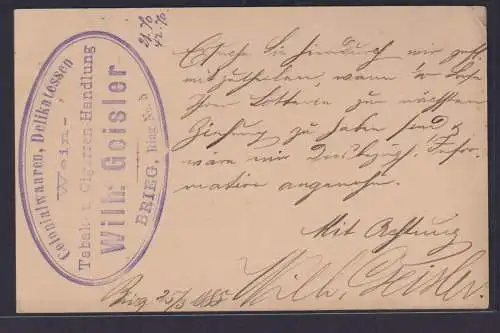 Colonialwaaren, Delikatessen
Wein-,
Tabak- & Cigarren-Handlung
Wilh: Geisler
BRIEG, Ring No.
Ersuche Sie hierdurch mir gefl.
mitzutheilen, wann Loose
Ihrer Lotterie zur nächsten
Ziehung zu haben sind &
wäre mir diesbezügl. Infor-
mation angenehm.
Mit Achtung
Wilh. Geisler.
Brieg 25/ 1885